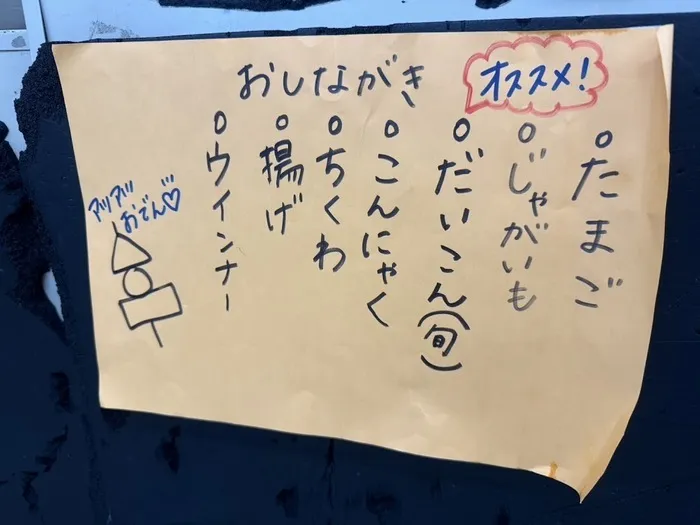 おしながき
オススメ!
○たまご
○じゃがいも
○だいこん(旬)
○こんにゃく
○ちくわ
○揚げ
○ウインナー
アツアツ
おでん♡